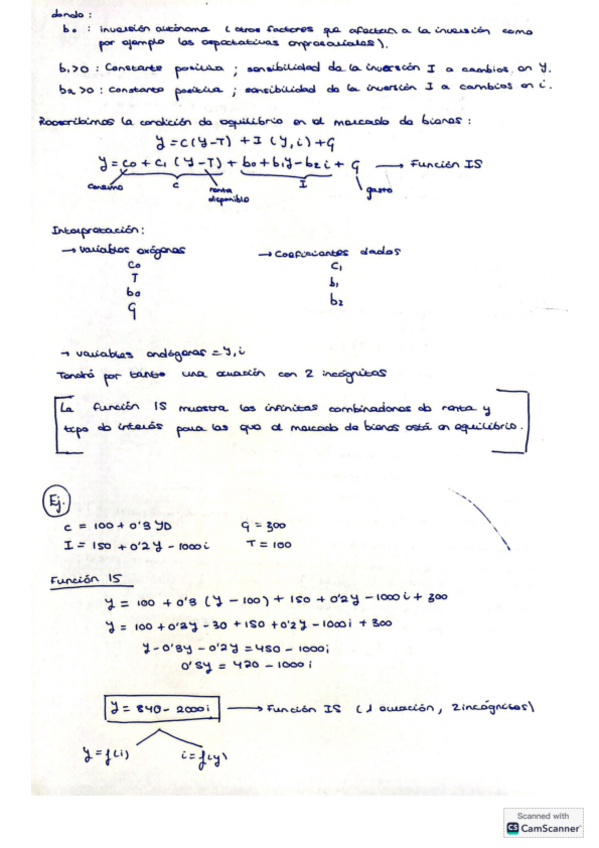 donde:
b₀: inversión autónoma (otros factores que afectan a la inversión como
por ejemplo las expectativas empresariales).
b₁>0: Constante positiva; sensibilidad de la inversión I a cambios en Y.
b₂>0: Constante positiva; sensibilidad de la inversión I a cambios en i.
Reescribimos la condición de equilibrio en el mercado de bienes:
Y = C(Y-T) + I(Y,i) + G
Y = C₀ + C₁(Y-T) + b₀ + b₁Y - b₂i + G → Función IS
consumo C renta disponible I gasto
Interpretación:
→ Variables exógenas → Coeficientes dados
C₀ C₁
T b₁
b₀ b₂
G
→ Variables endógenas = Y, i
Tendré por tanto una ecuación con 2 incógnitas
La función IS muestra las infinitas combinaciones de renta y
tipo de interés para las que el mercado de bienes está en equilibrio.
Ej.
C = 100 + 0'3 YD G = 300
I = 150 + 0'2Y - 1000i T = 100
Función IS
Y = 100 + 0'3 (Y - 100) + 150 + 0'2Y - 1000i + 300
Y = 100 + 0'3Y - 30 + 150 + 0'2Y - 1000i + 300
Y - 0'3Y - 0'2Y = 450 - 1000i
0'5Y = 420 - 1000i
Y = 840 - 2000i → Función IS (1 ecuación, 2 incógnitas)
Y = f(i) i = f(Y)
Scanned with
CS CamScanner